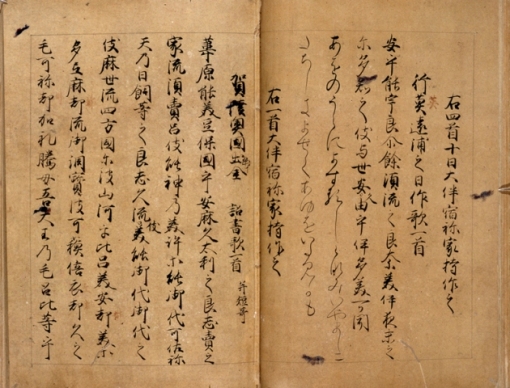 右四首十日大伴宿祢家持作之
行英遠浦之日作歌一首
安乎能宇良尓餘須流之良奈美伊夜末之
尓多知之伎与世久安由乎伊多美可聞
あをのうらによするしらなみいやましに
たちしきよせくあゆをいたみかも
右一首大伴宿祢家持作之
賀陸奥國出金 詔書歌一首 并短哥
葦原能美豆保國乎安麻久太利之良志賣之
家流須賣呂伎能神乃美許等能御代可佐祢
天乃日嗣等之良志久流伎美能御代御代之
伎麻世流四方國尓波山河乎比呂美安都美等
多弖麻都流御調寶波可倍衣都久之
毛可祢都加礼騰母吾大王乃毛呂比等乎